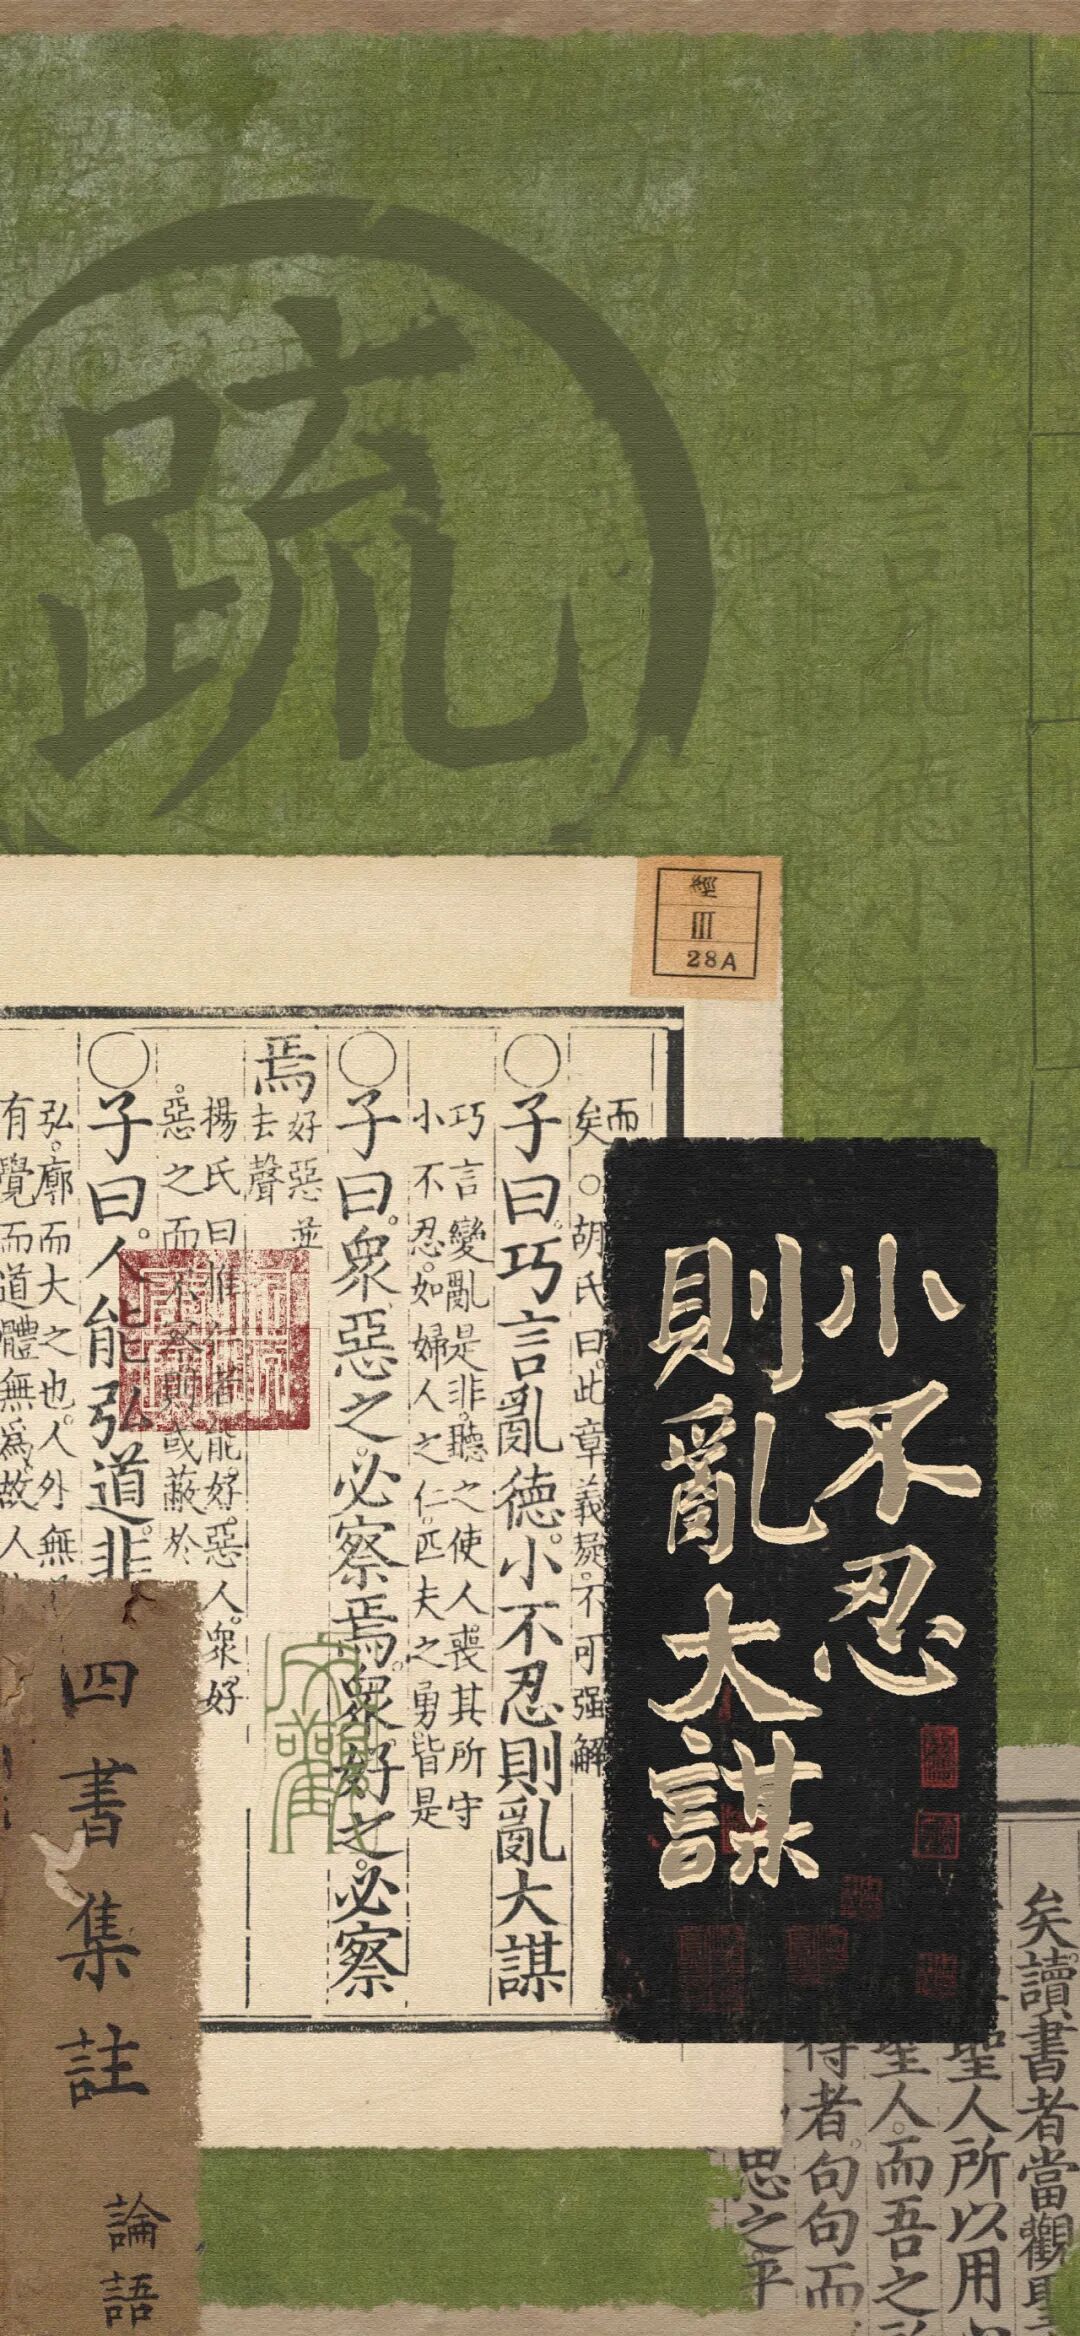 疏
經
III
28A
小不忍
則亂大謀
而
矣○胡氏曰此章義疑不可强解
○子曰巧言亂德小不忍則亂大謀
巧言變亂是非聽之使人喪其所守
小不忍如婦人之仁匹夫之勇皆是
○子曰衆惡之必察焉衆好之必察
焉
好惡並
去聲
揚氏曰惟仁者能好惡人衆好
惡之而不察則或蔽於
○子曰人能弘道非
弘廓而大之也人外無
有覺而道體無爲故人
四書集註
論語
矣讀書者當觀聖
聖人所以用
聖人而吾之所
得者句句而
思之平